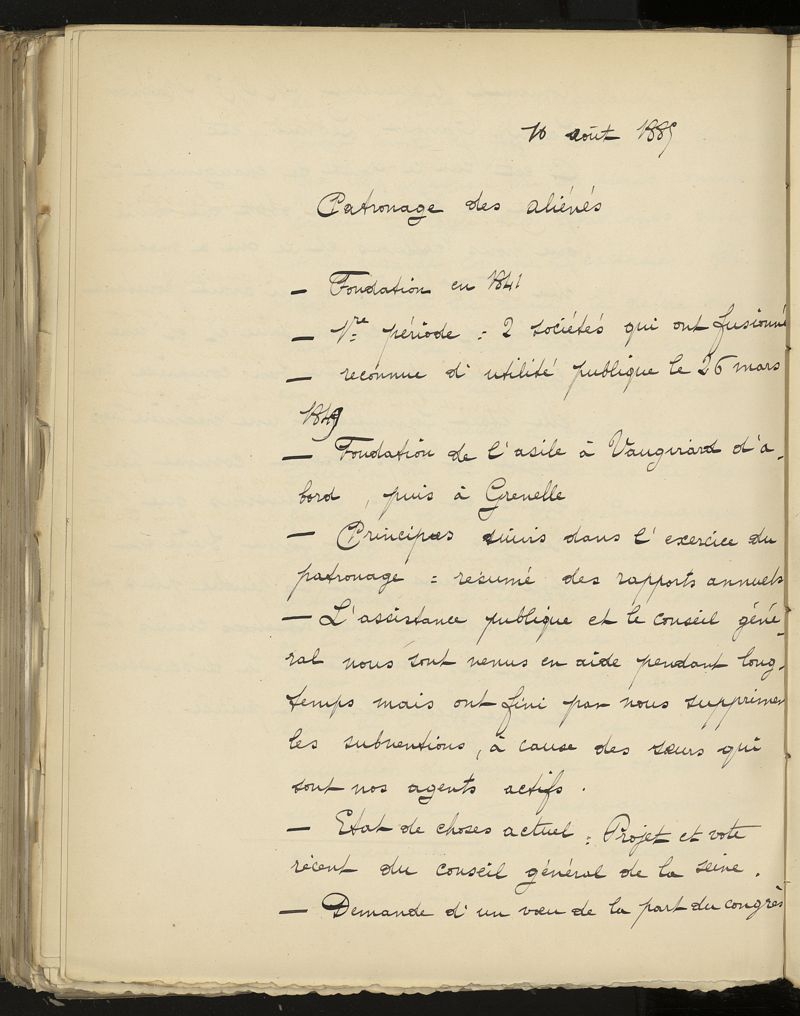 10 août 1889
Patronage des aliénés
— Fondation en 1841
— 1re période = 2 sociétés qui ont fusionné
— reconnue d'utilité publique le 26 mars
1849
— Fondation de l'asile à Vaugirard d'a-
bord, puis à Grenelle
— Principes suivis dans l'exercice du
patronage = résumé des rapports annuels
— L'assistance publique et le conseil géné-
ral nous sont venus en aide pendant long-
temps mais ont fini par nous supprimer
les subventions, à cause des sœurs qui
sont nos agents actifs.
— Etat de choses actuel = Projet et vote
récent du conseil général de la Seine.
— Demande d'un vœu de la part du congrès